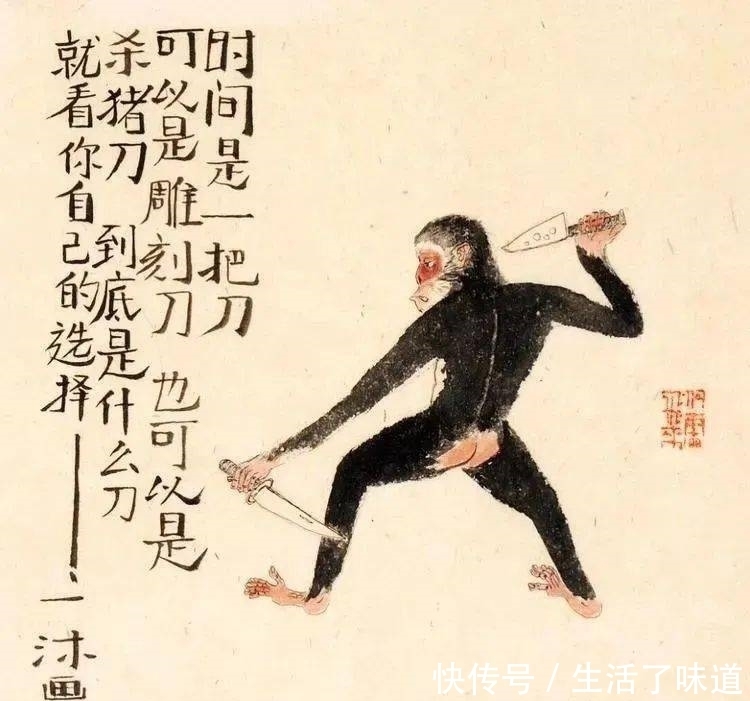 时间是一把刀
可以是雕刻刀 也可以是
杀猪刀 到底是什么刀
就看你自己的选择——
一沐画
快传号 / 生活了味道